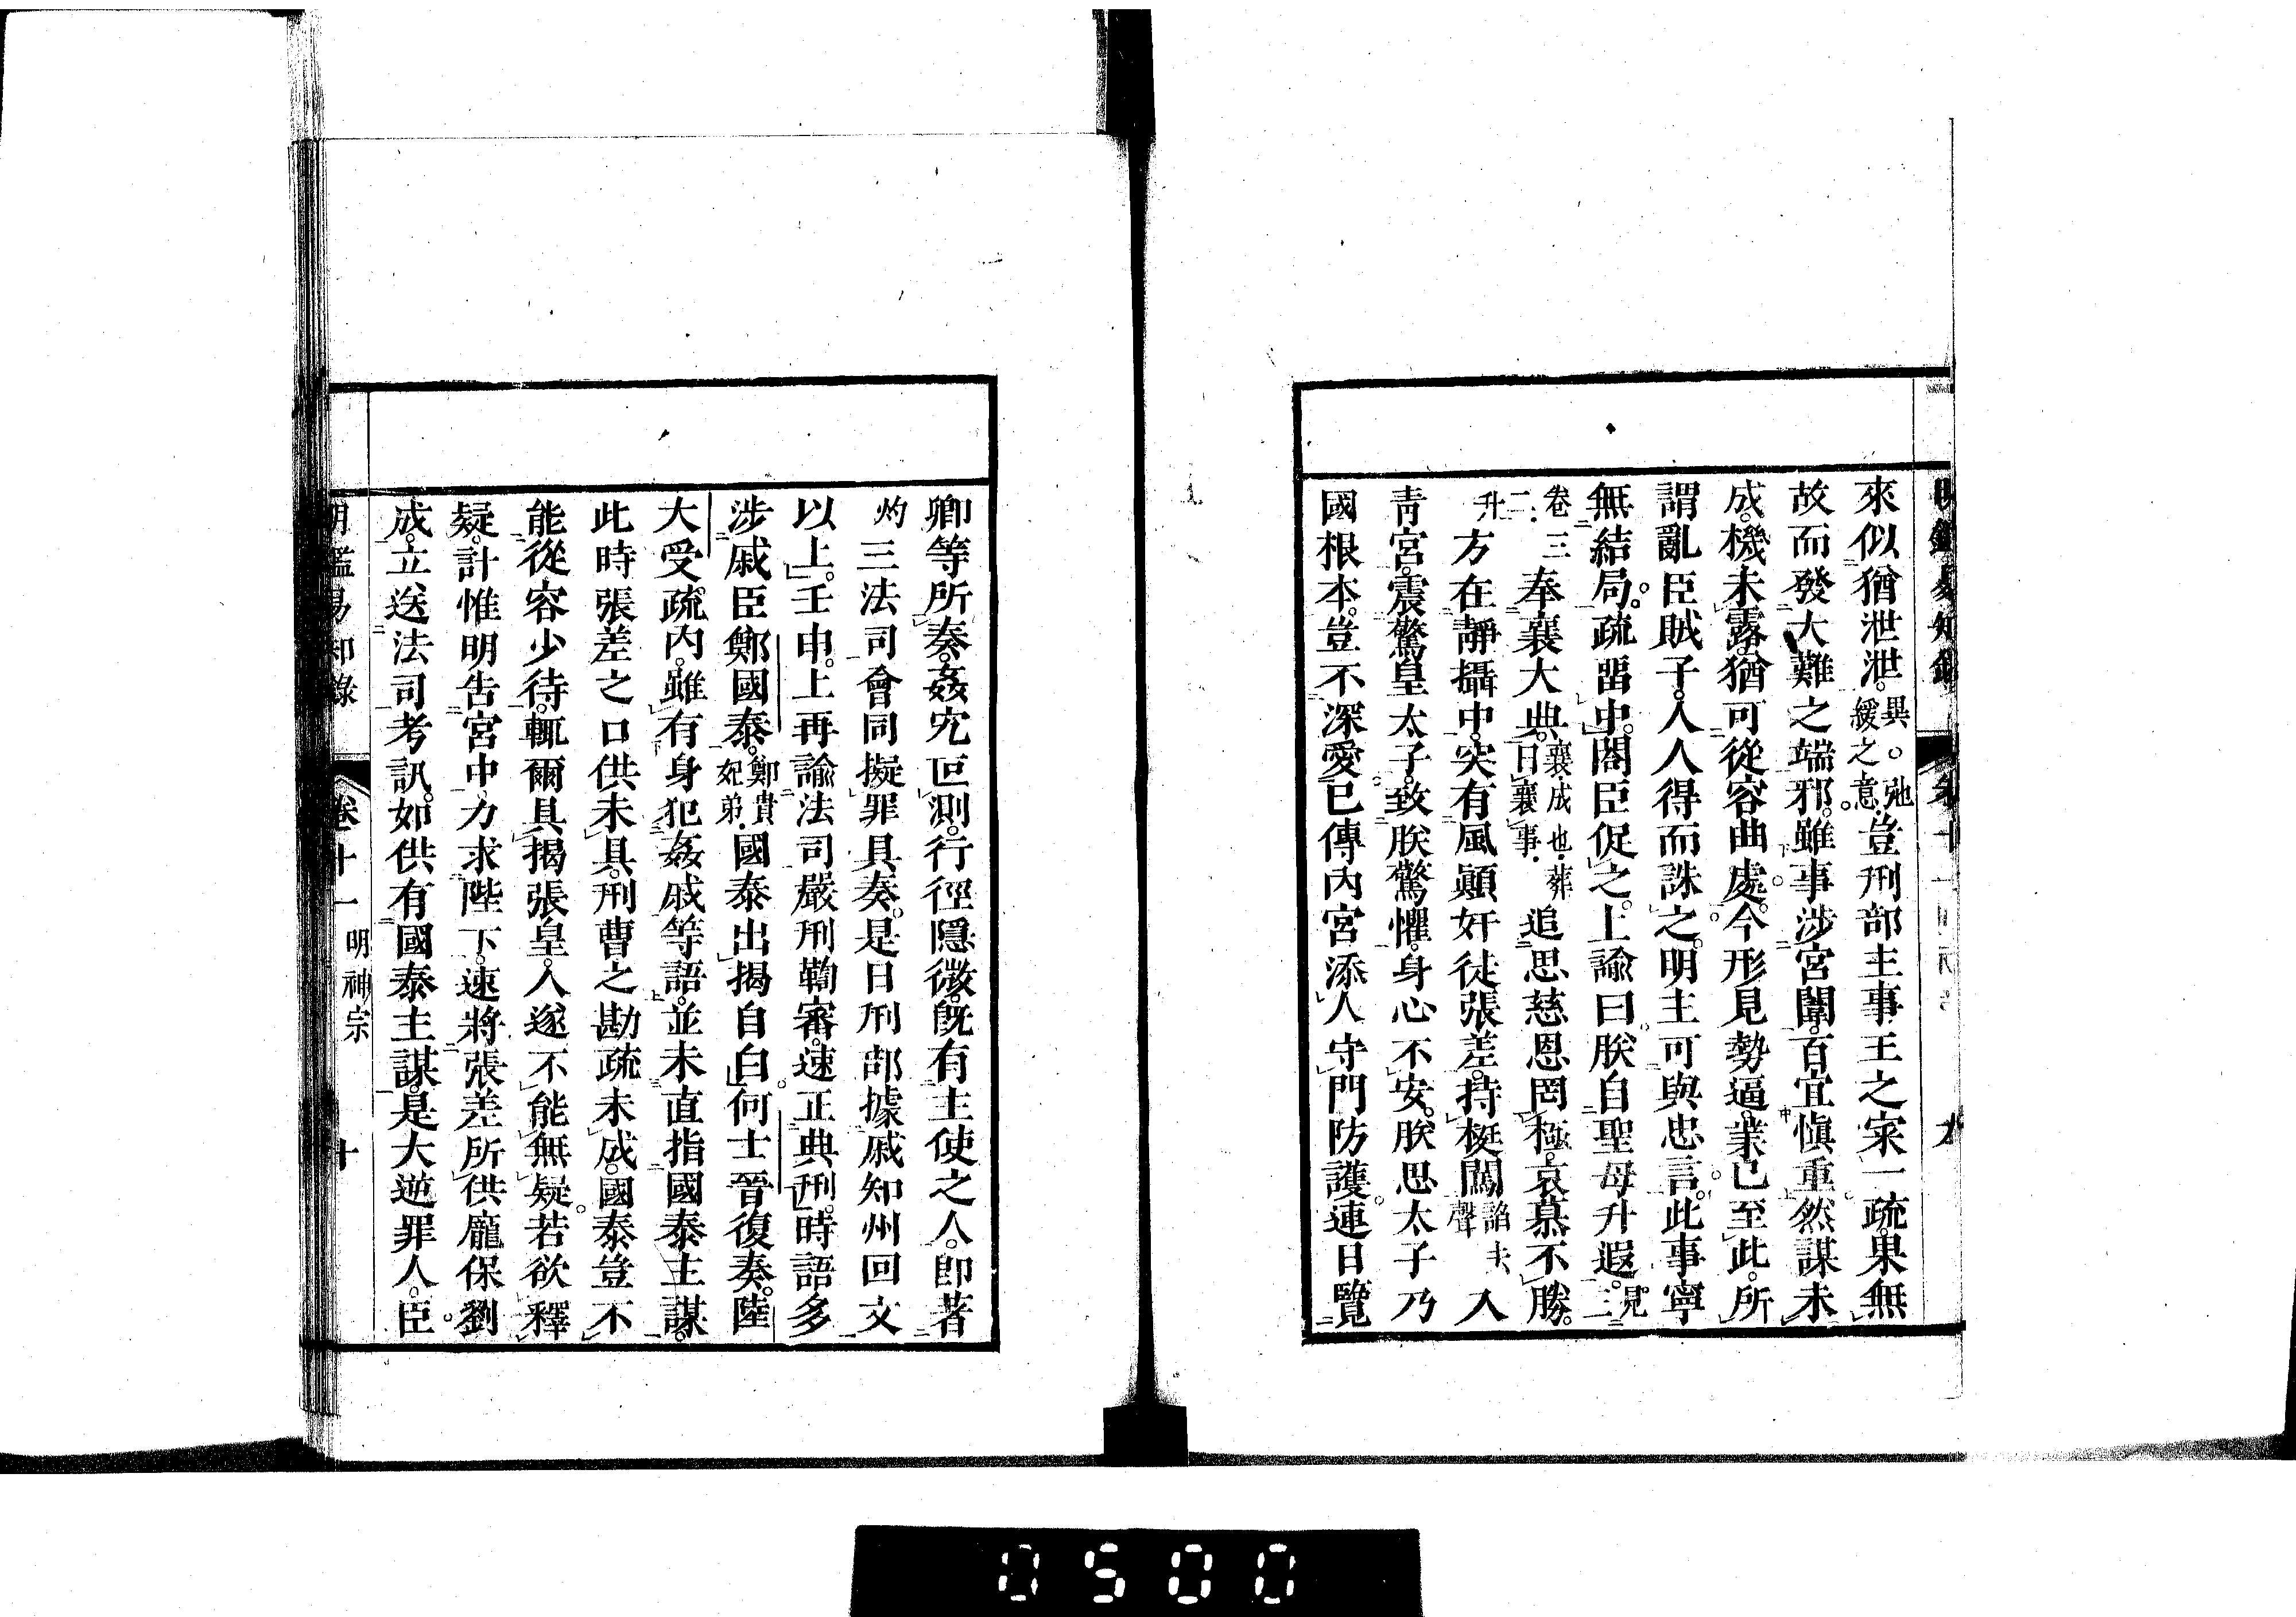 來似猶泄泄異。弛緩之意。豈刑部主事王之寀一疏。果無
故而發大難之端邪。雖事涉宮闈。百宜愼重。然謀未
成。機未露。猶可從容曲處。今形見勢逼。業已至此。所
謂亂臣賊子。人人得而誅之。明主可與忠言。此事寧
無結局。疏畱中。閣臣促之。上諭曰。朕自聖母升遐。見三
卷三二。奉襄大典。襄成也。葬曰襄事。追思慈恩罔極。哀慕不勝。
升方在靜攝中。突有風顚奸徒張差。持梃闖諂去聲入
靑宮。震驚皇太子。致朕驚懼。身心不安。朕思太子乃
國根本。豈不深愛。已傳內宮添人守門防護。連日覽
卿等所奏。姦宄叵測。行徑隱微。旣有主使之人。卽著
灼三法司會同擬罪具奏。是日刑部據戚知州回文
以上。壬申。上再諭法司嚴刑鞫審。速正典刑。時語多
涉戚臣鄭國泰。鄭貴妃弟。國泰出揭自白。何士晉復奏。陸
大受疏內。雖有身犯姦戚等語。並未直指國泰主謀。
此時張差之口供未具。刑曹之勘疏未成。國泰豈不
能從容少待。輒爾具揭張皇。人遂不能無疑。若欲釋
疑。計惟明告宮中。力求陛下。速將張差所供龐保劉
成。立送法司考訊。如供有國泰主謀。是大逆罪人。臣
明鑑易知錄 卷十一 明神宗 十
0500